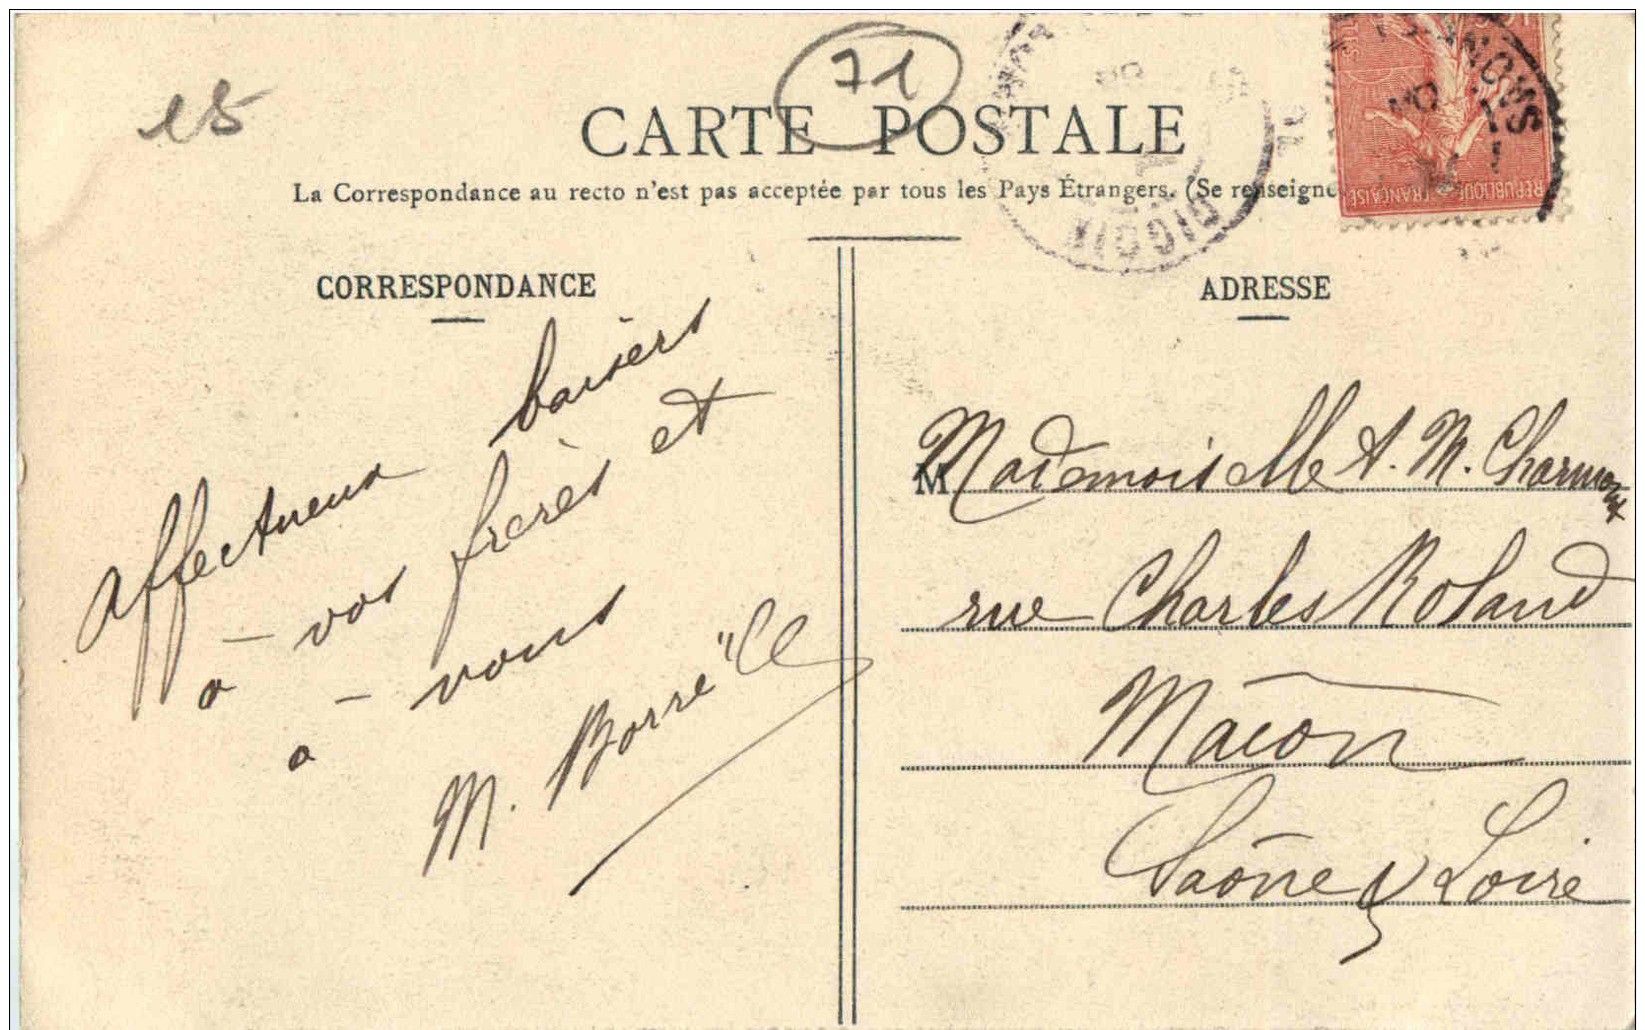 15
71
CARTE POSTALE
La Correspondance au recto n'est pas acceptée par tous les Pays Étrangers. (Se renseigne
RÉPUBLIQUE FRANÇAISE
CORRESPONDANCE
Affectueux baisers
à vos frères et
à vous
M. Borre
ADRESSE
M Mademoiselle A. M. Charmont
rue Charles Roland
Macon
Saône & Loire
DIGOIN